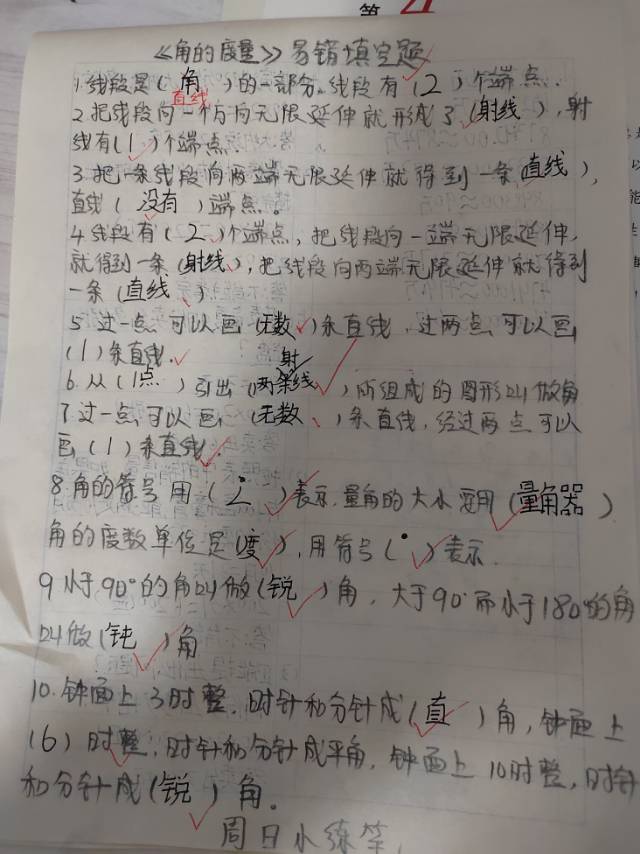 第4
《角的度量》易错填空题
1.线段是(角)的一部分。线段有(2)个端点.
直线
2.把线段向一个方向无限延伸就形成了(射线),射
线有(1)个端点
3.把一条线段向两端无限延伸就得到一条(直线),
直线(没有)端点。
4.线段有(2)个端点,把线段向一端无限延伸,
就得到一条(射线),把线段向两端无限延伸就得到
一条(直线)
5.过一点,可以画(无数)条直线,过两点可以画
(1)条直线.
射
6.从(1点)引出(两条线)所组成的图形叫做角
7.过一点可以画(无数)条直线,经过两点可以
画(1)条直线.
8.角的符号用(∠)表示.量角的大小要用(量角器)
角的度数单位是(度),用符号(°)表示.
9.小于90°的角叫做(锐)角,大于90°而小于180°的角
叫做(钝)角
10.钟面上3时整,时针和分针成(直)角,钟面上
(6)时整,时针和分针成平角,钟面上10时整,时针
和分针成(锐)角.
周日小练笔.